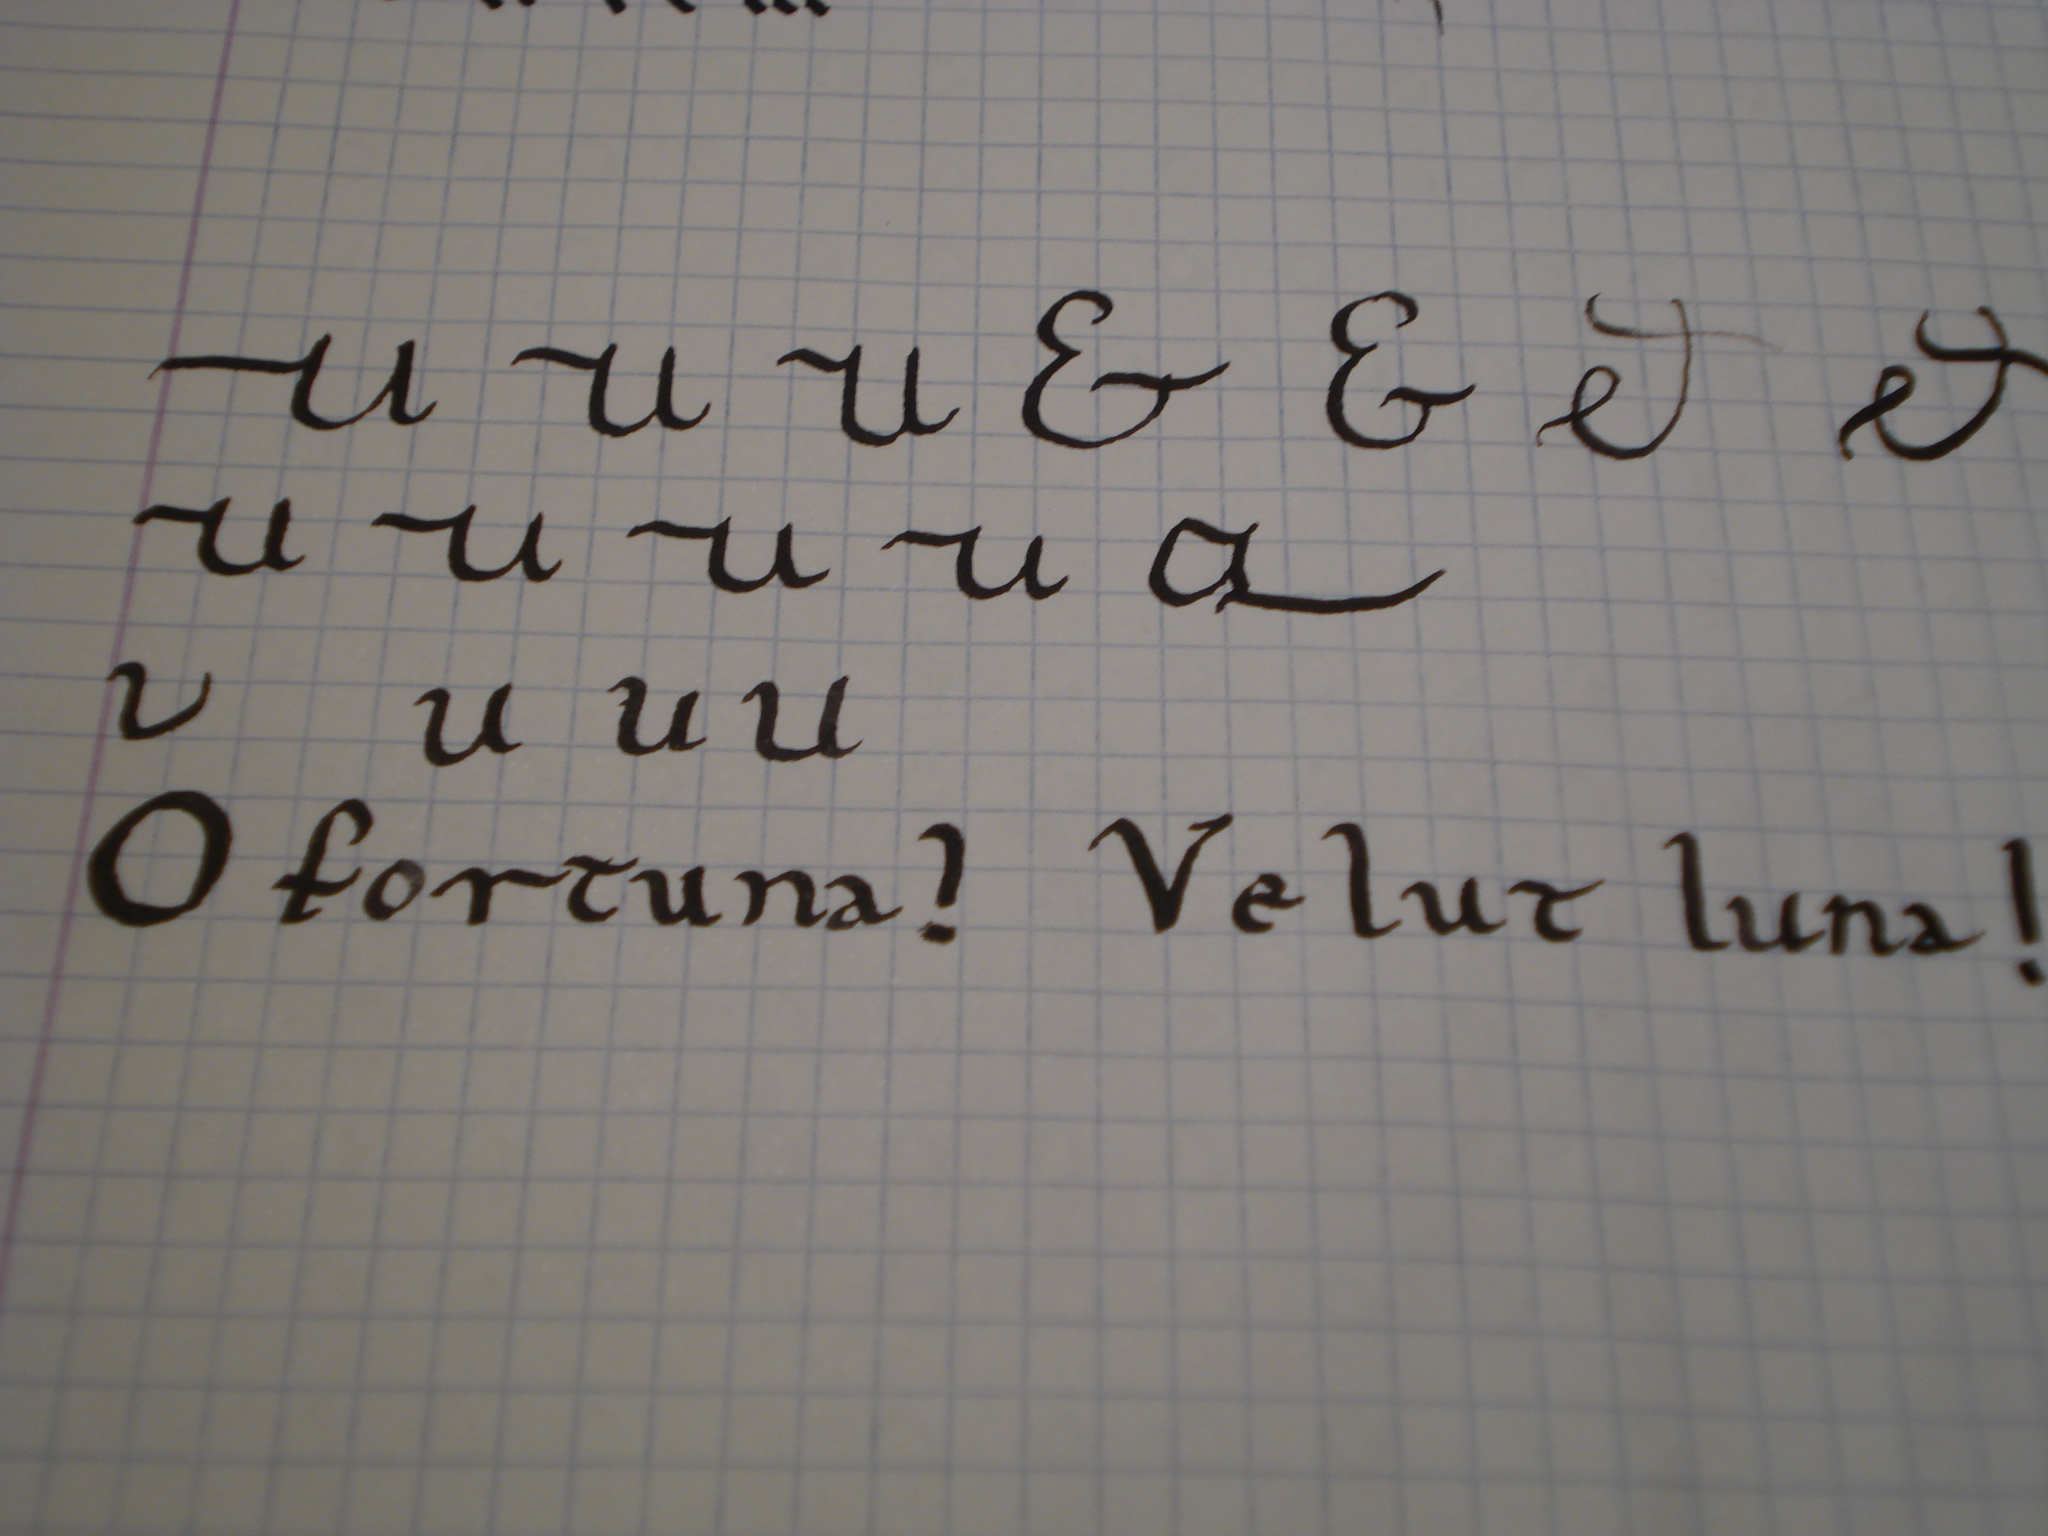 u u u & & & &
u u u u a
v u u u
O fortuna! Velut luna!